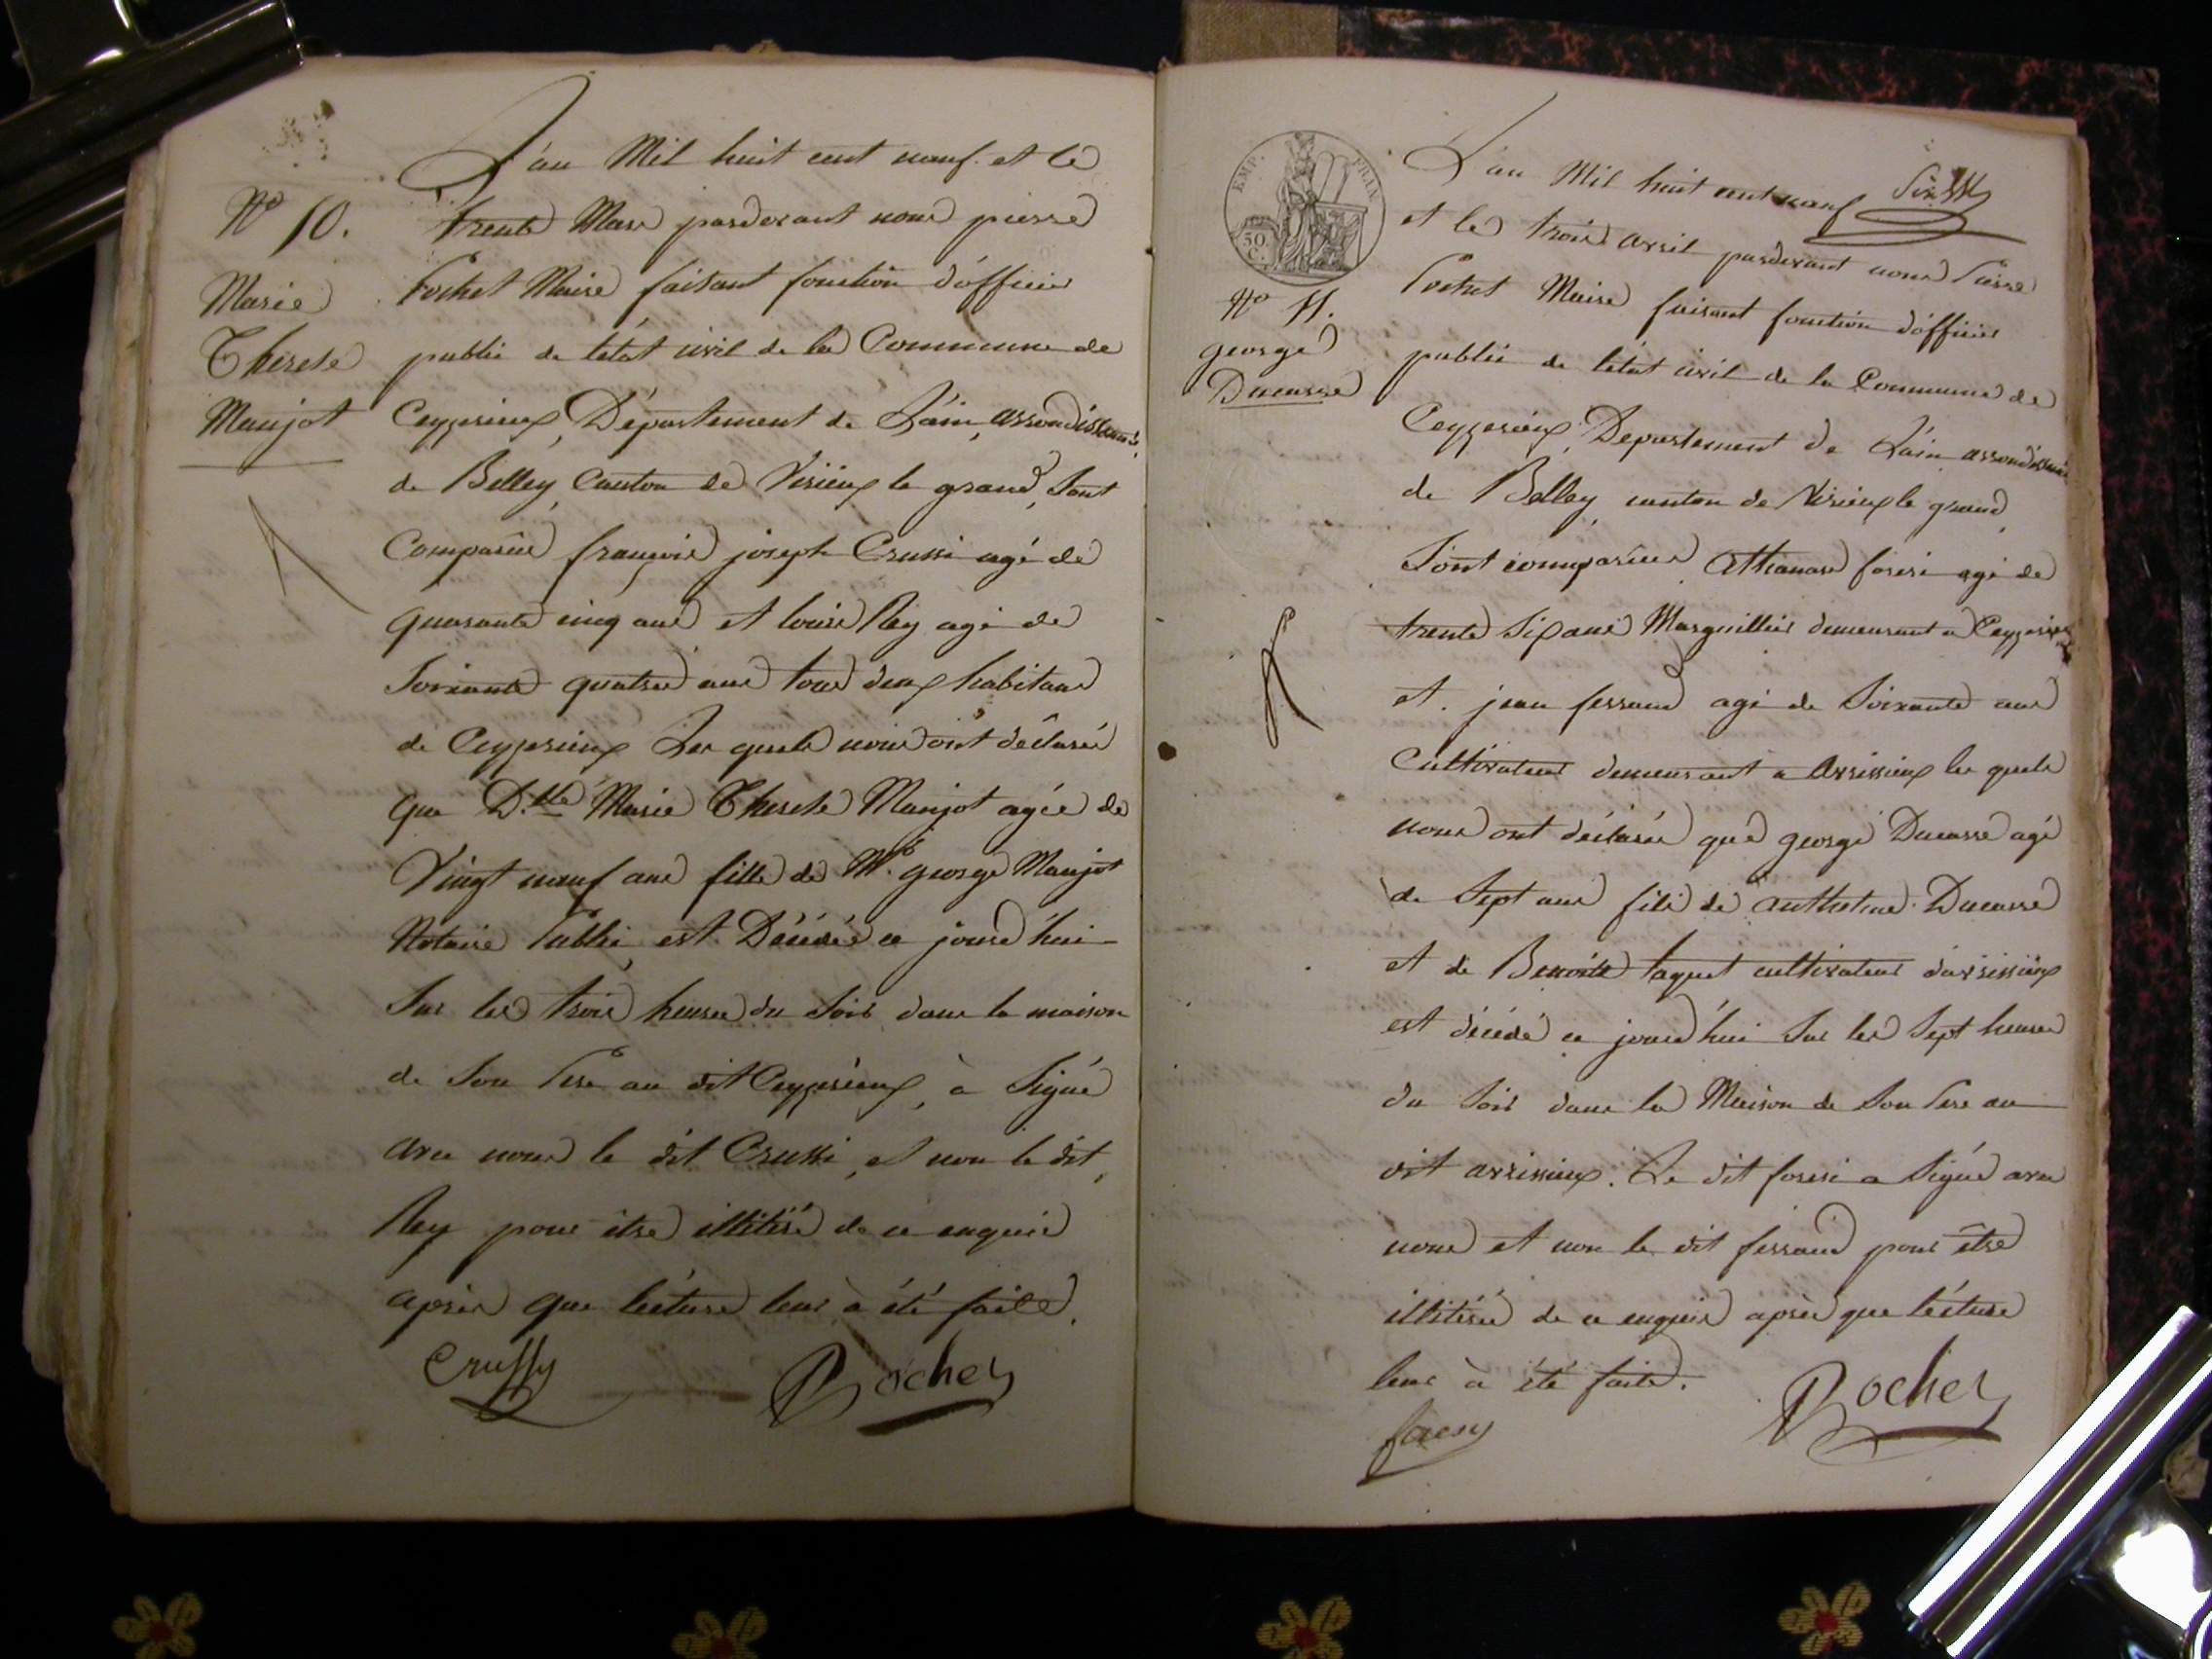 N° 10.
Marie
Therese
Maujot
L'an Mil huit cent neuf et le
trente Mars pardevant nous pierre
Rochet Maire faisant fonction d'officier
public de l'état civil de la Commune de
Ceyzerieux, Département de L'ain, arrondissement
de Belley, Canton de Virieux le grand, Sont
Comparus françois joseph Crussi agé de
quarante cinq ans et louis Rey agé de
Soixante quatre ans tous deux habitans
de Ceyzerieux Les quels nous ont déclaré
que D.lle Marie Therese Maujot agée de
Vingt neuf ans fille de Mr. george Maujot
Notaire Public, est Décédée ce jourd'hui
Sur les trois heures du Soir dans la maison
de Son Pere au dit Ceyzerieux, à Signé
avec nous le dit Crussi, et non le dit,
Rey pour être illitéré de ce enquis
après que lécture leur à été faite.
Crussy Rochet
EMP. FRAN
50. C.
N° 11.
george
Ducarre
L'an Mil huit cent neuf
et le trois avril pardevant nous Pierre
Rochet Maire faisant fonction d'officier
public de l'état civil de la Commune de
Ceyzerieux, Departement de L'ain arrondissement
de Belley, canton de Virieux le grand,
Sont comparus Athanase foresi agé de
trente Six ans Marguillier demeurant a Ceyzerieux
et jean ferrand agé de Soixante ans
Cultivateur demeurant a avrissieux les quels
nous ont déclaré que george Ducarre agé
de Sept ans fils de anthelme Ducarre
et de Benoite taquet cultivateur d'avrissieux
est décédé ce jourd'hui Sur les Sept heures
du Soir dans la Maison de Son Pere au
dit avrissieux. Le dit foresi a Signé avec
nous et non le dit ferrand pour être
illitéré de ce enquis après que lécture
leur à été faite.
Rochet